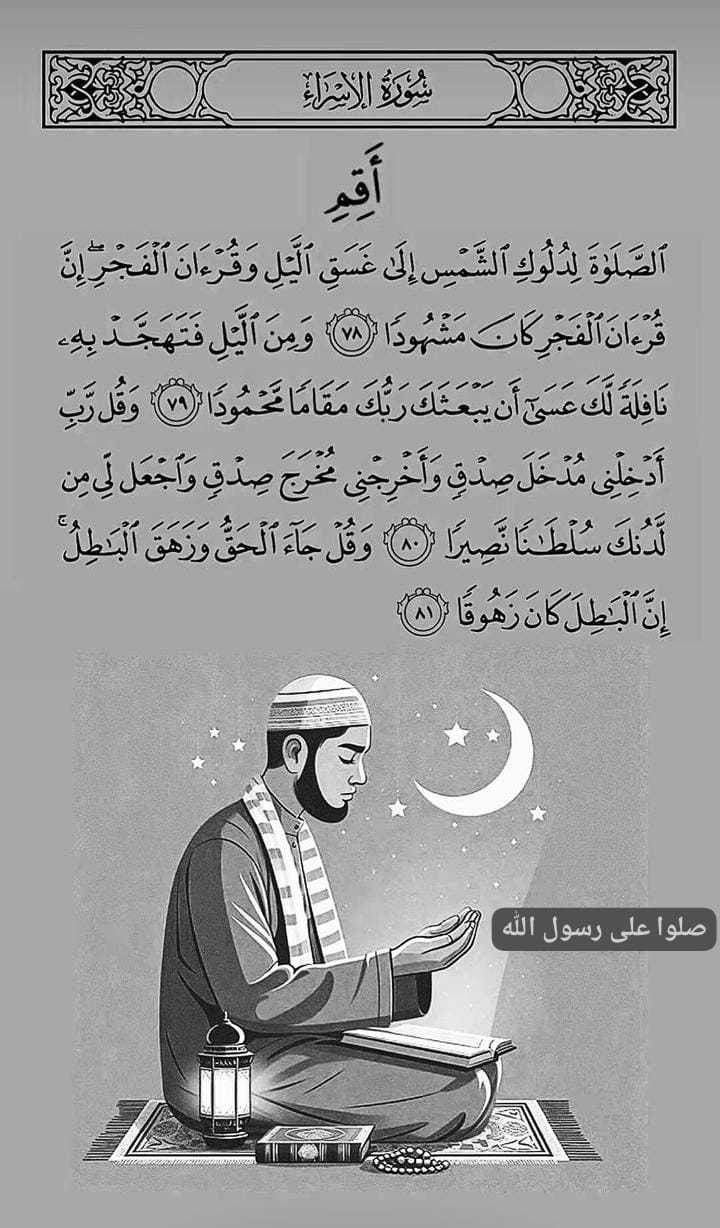 سُورَةُ الإِسْرَاءِ
أَقِمِ
ٱلصَّلَوٰةَ لِدُلُوكِ ٱلشَّمْسِ إِلَىٰ غَسَقِ ٱلَّيْلِ وَقُرْءَانَ ٱلْفَجْرِ ۖ إِنَّ
قُرْءَانَ ٱلْفَجْرِ كَانَ مَشْهُودًا ٧٨ وَمِنَ ٱلَّيْلِ فَتَهَجَّدْ بِهِۦ
نَافِلَةً لَّكَ عَسَىٰٓ أَن يَبْعَثَكَ رَبُّكَ مَقَامًا مَّحْمُودًا ٧٩ وَقُل رَّبِّ
أَدْخِلْنِى مُدْخَلَ صِدْقٍ وَأَخْرِجْنِى مُخْرَجَ صِدْقٍ وَٱجْعَل لِّى مِن
لَّدُنكَ سُلْطَـٰنًا نَّصِيرًا ٨٠ وَقُلْ جَآءَ ٱلْحَقُّ وَزَهَقَ ٱلْبَـٰطِلُ ۚ
إِنَّ ٱلْبَـٰطِلَ كَانَ زَهُوقًا ٨١
صلوا على رسول الله